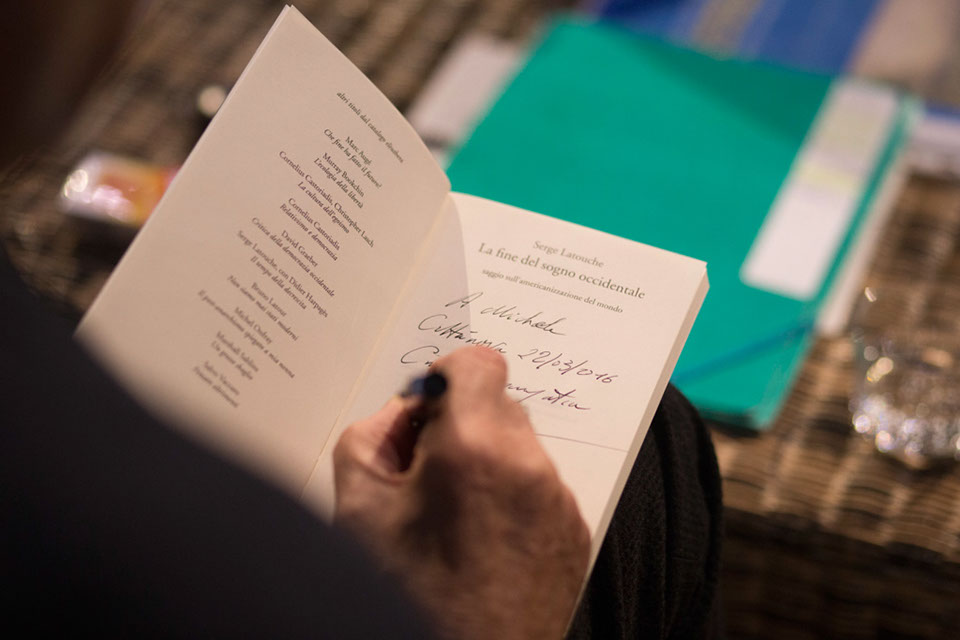 altri titoli dal catalogo elèuthera
Marc Augé
Che fine ha fatto il futuro?
Murray Bookchin
L'ecologia della libertà
Cornelius Castoriadis, Christopher Lasch
La cultura dell'egoismo
Cornelius Castoriadis
Relativismo e democrazia
David Graeber
Critica della democrazia occidentale
Serge Latouche, con Didier Harpagès
Il tempo della decrescita
Bruno Latour
Non siamo mai stati moderni
Michel Onfray
Il post-anarchismo spiegato a mia nonna
Marshall Sahlins
Un grosso sbaglio
Salvo Vaccaro
Pensare altrimenti
Serge Latouche
La fine del sogno occidentale
saggio sull'americanizzazione del mondo
A Michele
Cittanova 22/03/2016